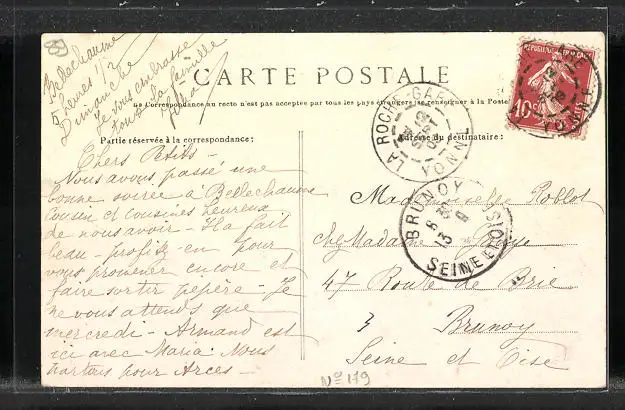 89
Bellechaume
5 heures 1/2
Dimanche
Je vous embrasse
toute la famille
CARTE POSTALE
La Correspondance au recto n'est pas acceptée par tous les pays étrangers (se renseigner à la Poste)
Partie réservée à la correspondance:
Adresse du destinataire:
REPUBLIQUE FRANÇAISE
10c
LA ROCHE-GARE
YONNE
12
SEPT
BRUNOY
13
9
SEINE ET OISE
Chers Petits -
Nous avons passé une
bonne soirée à Bellechaume
cousin et cousines heureux
de nous avoir - Il a fait
beau - profite-en pour
vous promener encore et
faire sortir pépère - Je
ne vous attends que
mercredi - Armand est
ici avec Maria. Nous
partons pour Arces -
Mademoiselle Roblot
chez Madame
47 Route de Brie
Brunoy
Seine et Oise
No 179